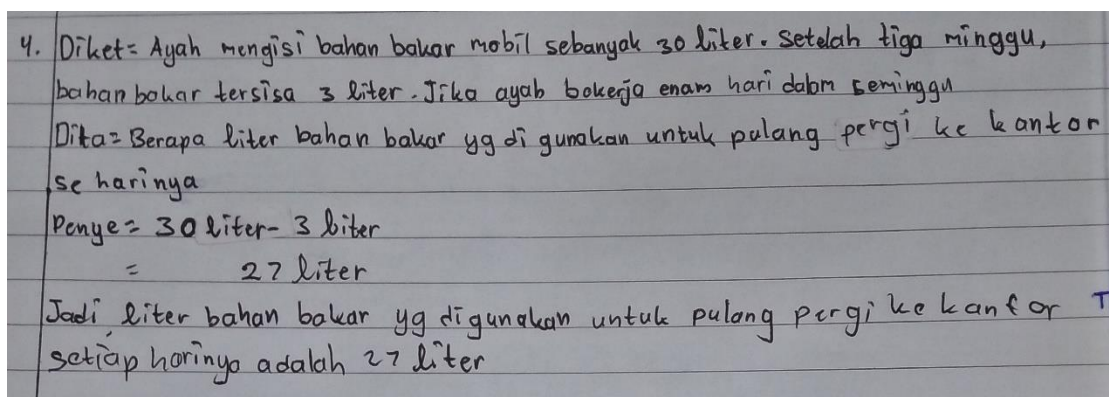 4. Diket = Ayah mengisi bahan bakar mobil sebanyak 30 liter. Setelah tiga minggu,
bahan bakar tersisa 3 liter. Jika ayah bekerja enam hari dalam seminggu
Dita = Berapa liter bahan bakar yg di gunakan untuk pulang pergi ke kantor
se harinya
Penye = 30 liter - 3 liter
= 27 liter
Jadi, liter bahan bakar yg digunakan untuk pulang pergi ke kantor T
setiap harinya adalah 27 liter